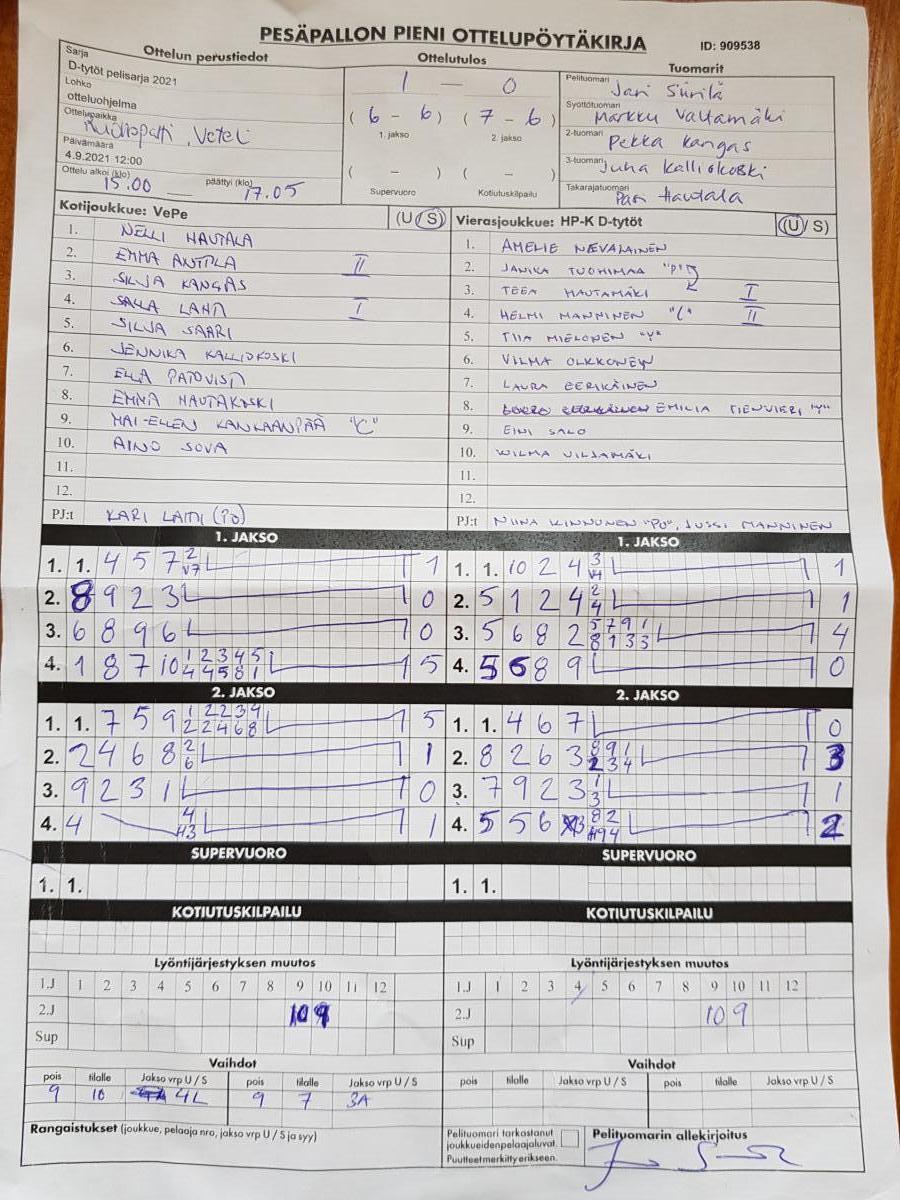 PESÄPALLON PIENI OTTELUPÖYTÄKIRJA ID: 909538
Ottelun perustiedot Ottelutulos Tuomarit
Sarja
D-tytöt pelisarja 2021
Lohko
otteluohjelma
Ottelupaikka
Veteli
Päivämäärä
4.9.2021 12:00
Ottelu alkoi (klo) 15.00 päättyi (klo) 17.05
1 — 0
( 6 - 6 ) ( 7 - 6 )
1. jakso 2. jakso
( - ) ( - )
Supervuoro Kotiutuskilpailu
Pelituomari Jari Siirilä
Syöttötuomari Markku Valtamäki
2-tuomari Pekka Kangas
3-tuomari Juha Kalliokoski
Takarajatuomari Pasi Hautala
Kotijoukkue: VePe (U/S)
1. NELLI HAUTALA
2. EMMA ANTTLA II
3. SILJA KANGAS
4. SALLA LAHTI I
5. SILJA SAARI
6. JENNIKA KALLIOKOSKI
7. ELLA
8. EMMA HAUTAKOSKI
9. MAI-ELLEN KANKAANPÄÄ "C"
10. AINO SOVA
11.
12.
PJ:t KARI LAHTI (PJ)
Vierasjoukkue: HP-K D-tytöt (U/S)
1. AMELIE NEVALAINEN
2. JANIKA TUOHIMAA "P"
3. TEEA HAUTAMÄKI I
4. HELMI MANNINEN "C" II
5. TIIA MIELONEN "Y"
6. VILMA OLKKONEN
7. LAURA EERIKÄINEN
8. EMILIA TIENVIERI "Y"
9. EINI SALO
10. WILMA VILJAMÄKI
11.
12.
PJ:t NIINA KINNUNEN "PJ", JUSSI MANNINEN
1. JAKSO 1. JAKSO
1. 1. 4 5 7 2 V7 1
2. 8 9 2 3 0
3. 6 8 9 6 0
4. 1 8 7 10 1 2 3 4 5 4 4 5 8 1 5
1. 1. 10 2 4 3 V4 1
2. 5 1 2 4 2 4 1
3. 5 6 8 2 5 7 9 1 8 1 3 3 4
4. 5 6 8 9 0
2. JAKSO 2. JAKSO
1. 1. 7 5 9 1 2 2 3 4 2 2 4 6 8 5
2. 2 4 6 8 2 6 1
3. 9 2 3 1 0
4. 4 4 H3 1
1. 1. 4 6 7 0
2. 8 2 6 3 8 9 1 2 3 4 3
3. 7 9 2 3 1 3 1
4. 5 5 6 3 8 2 H9 4 2
SUPERVUORO SUPERVUORO
1. 1. 1. 1.
KOTIUTUSKILPAILU KOTIUTUSKILPAILU
Lyöntijärjestyksen muutos Lyöntijärjestyksen muutos
1.J 1 2 3 4 5 6 7 8 9 10 11 12 1.J 1 2 3 4 5 6 7 8 9 10 11 12
2.J 10 9 2.J 10 9
Sup Sup
Vaihdot Vaihdot
pois tilalle Jakso vrp U / S pois tilalle Jakso vrp U / S pois tilalle Jakso vrp U / S pois tilalle Jakso vrp U / S
9 10 4L 9 7 3A
Rangaistukset (joukkue, pelaaja nro, jakso vrp U / S ja syy)
Pelituomari tarkastanut
joukkueidenpelaajaluvat.
Puutteet merkitty erikseen.
Pelituomarin allekirjoitus